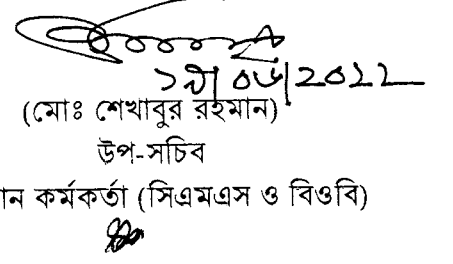 ১৯/০৬/২০২২
(মোঃ শেখাবুর রহমান)
উপ-সচিব
ান কর্মকর্তা (সিএমএস ও বিওবি)